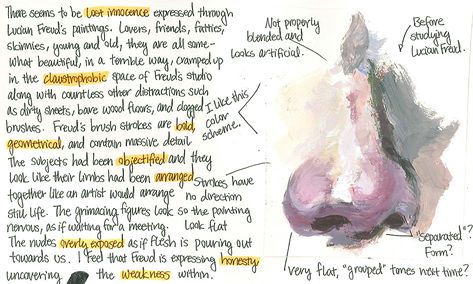 There seems to be lost innocence expressed through
Lucian Freud's paintings. Lovers, friends, fatties,
skinnies, young and old, they are all some-
what beautiful, in a terrible way, cramped up
in the claustrophobic space of Freud's studio
along with countless other distractions such
as dirty sheets, bare wood floors, and clogged
brushes. Freud's brush strokes are bold,
geometrical, and contain massive detail.
The subjects had been objectified and they
look like their limbs had been arranged
together like an artist would arrange
still life. The grimacing figures look so
nervous, as if waiting for a meeting.
The nudes overly exposed as if flesh is pouring out
towards us. I feel that Freud is expressing honesty,
uncovering the weakness within.
Not properly
blended and
looks artificial.
Before
studying
Lucian Freud.
I like this
color
scheme.
Strokes have
no direction
the painting
look flat
"separated"?
Form?
very flat, "grouped" tones next time?